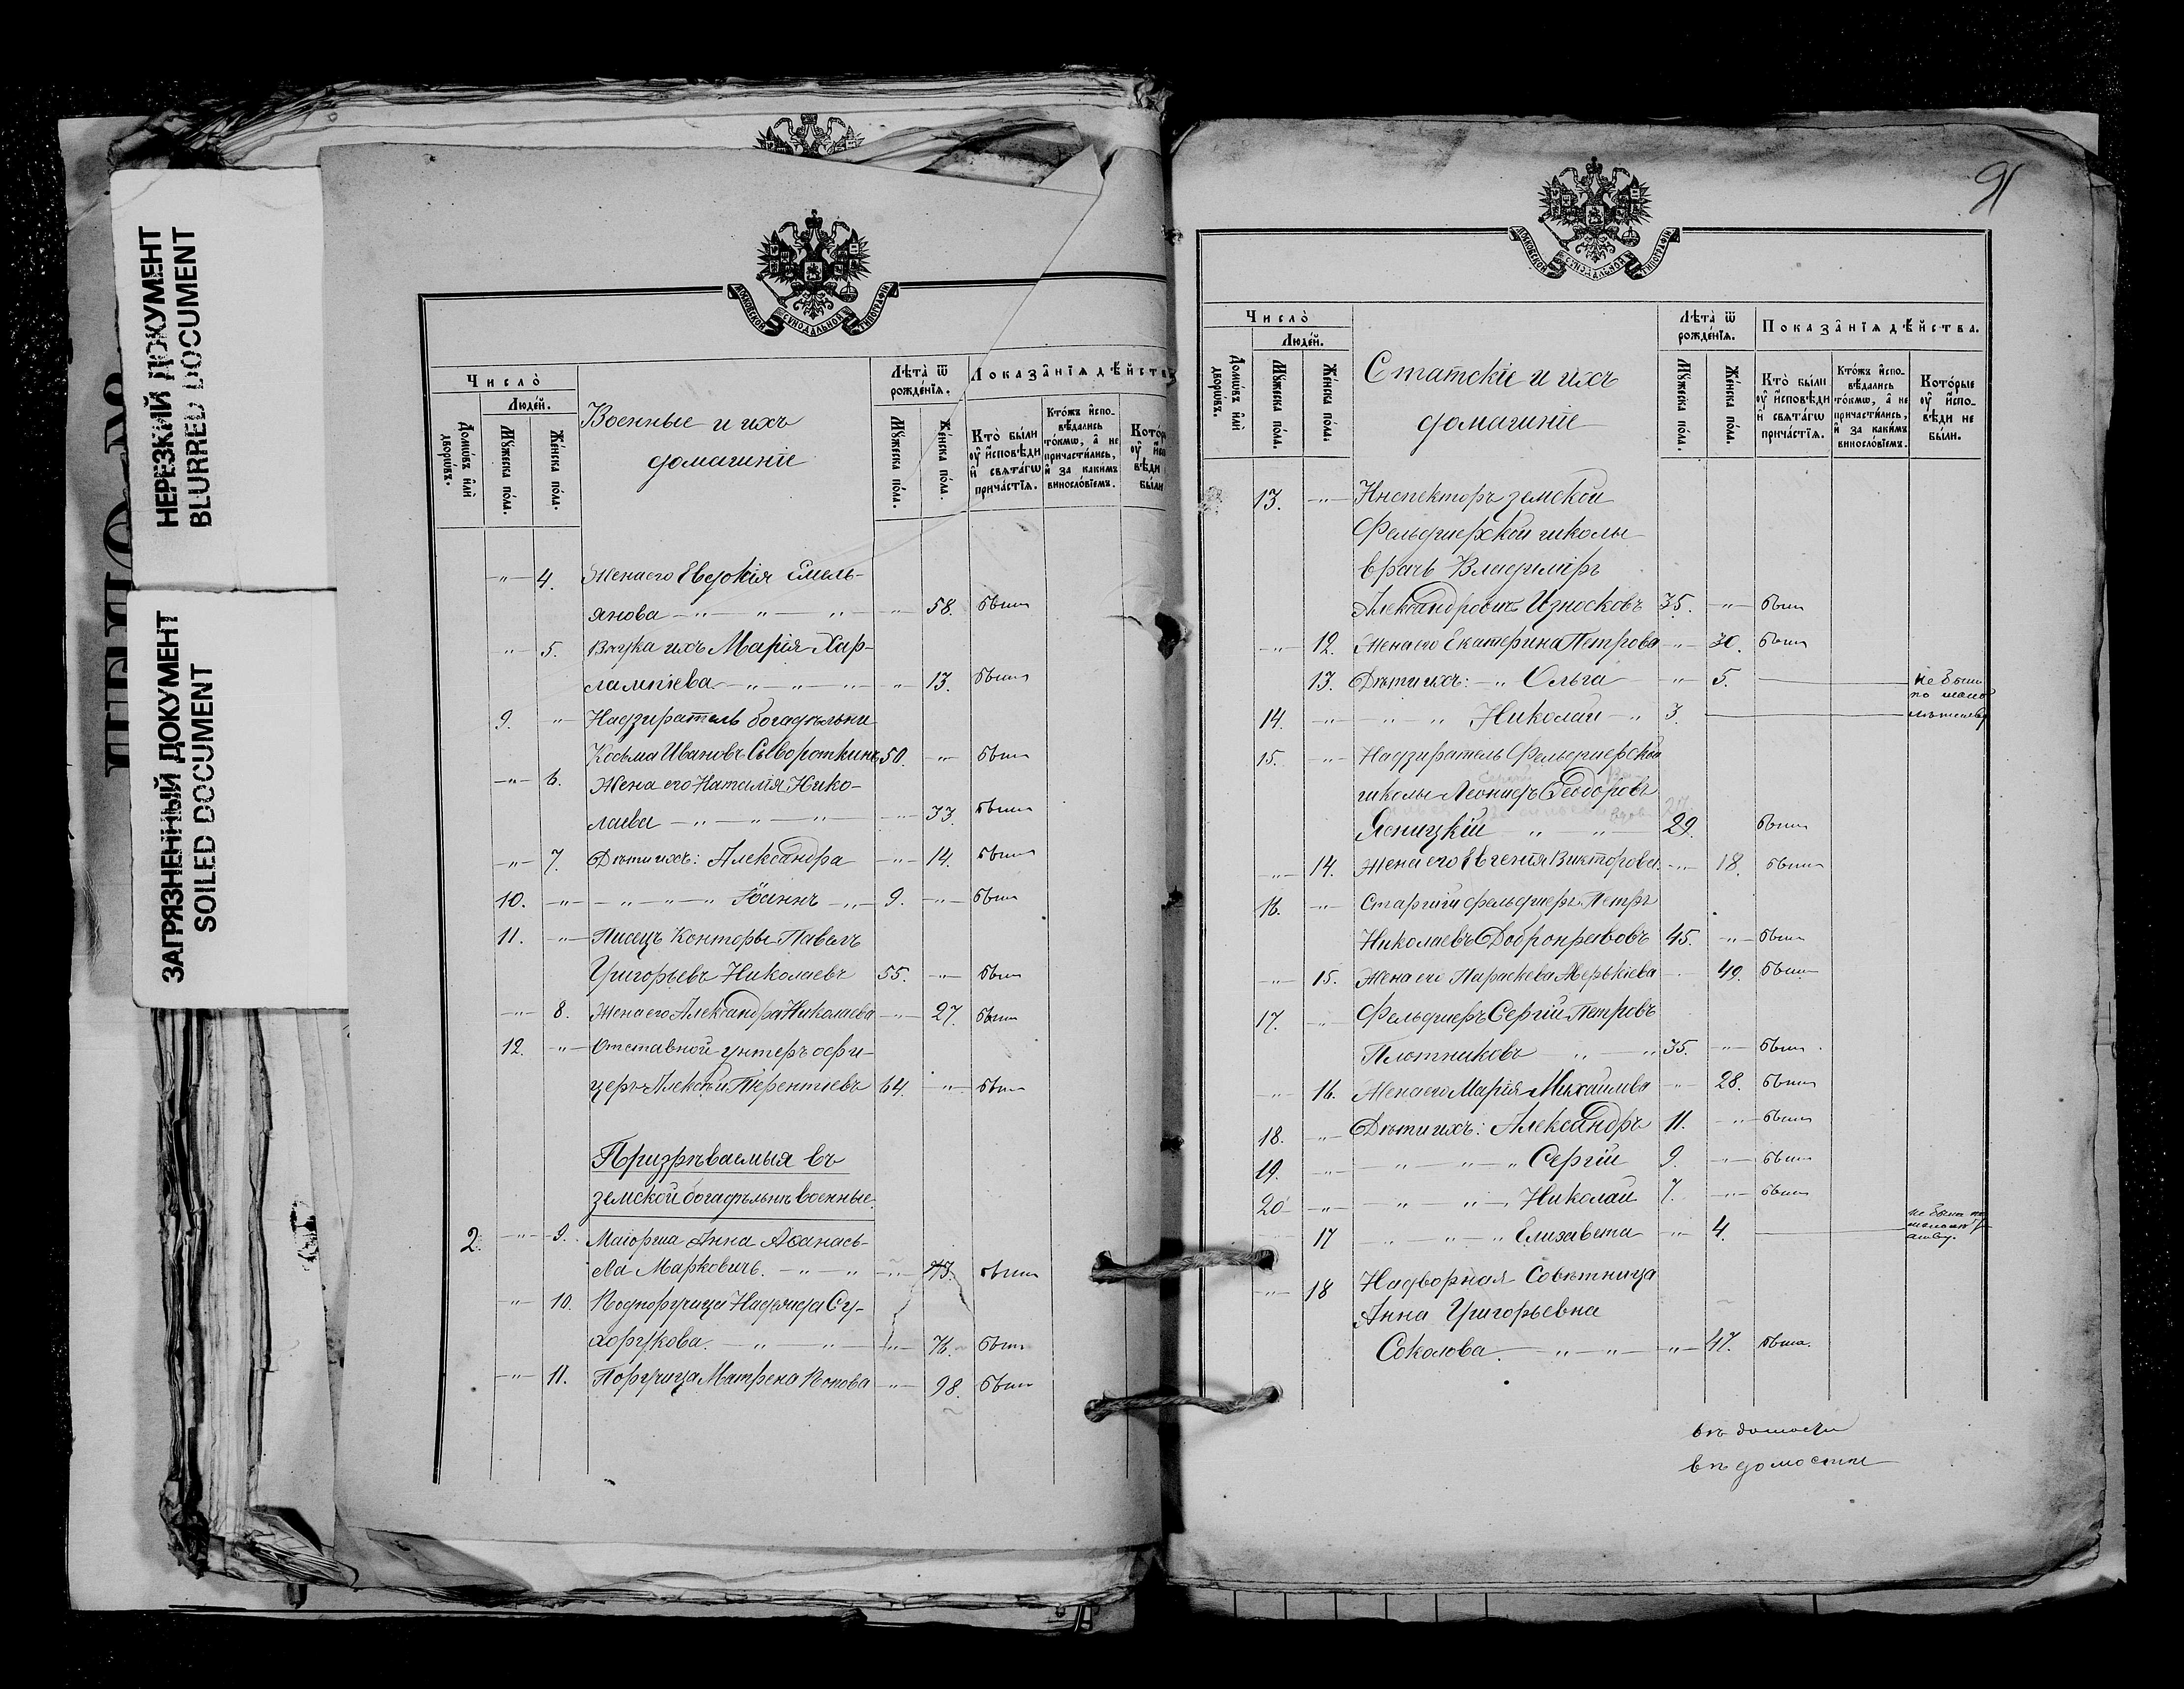 НЕРЕЗКИЙ ДОКУМЕНТ
BLURRED DOCUMENT
ЗАГРЯЗНЕННЫЙ ДОКУМЕНТ
SOILED DOCUMENT
МОСКОВСКОЙ СУНОДАЛЬНОЙ ТИПОГРАФІИ
Число̀
Люде́й.
Домѡ́въ и҆лѝ дворѡ́въ.
Мꙋ́жеска по́ла.
Же́нска по́ла.
Военные и ихъ
домашніе
Лѣта̀ ѿ рожде́нїѧ.
Мꙋ́жеска по́ла.
Же́нска по́ла.
Показа̂нїѧ дѣ́йств
Кто̀ бы́ли
ᲂу҆ и҆сповѣ́ди
и҆ свѧта́гѡ
прича́стїѧ.
Кто́жъ и҆спо-
вѣ́дались
то́кмѡ, а҆ не
причасти́лись,
и҆ за каки́мъ
виносло́вїемъ.
-"- 4. Жена его Евдокія Емель-
янова -"- " " -"- 58. были
-"- 5. Внука ихъ Марія Хар-
лампіева -"- -"- -"- -"- 13. были
9. -"- Надзиратель богадѣльни
Косьма Ивановъ Сывороткинъ 50. -"- были
-"- 6. Жена его Наталія Нико-
лаева -"- -"- -"- -"- 33. были
-"- 7. Дѣти ихъ: Александра -"- 14. были
10. -"- -"- -"- -"- Іоаннъ -"- 9. -"- были
11. -"- Писецъ Конторы Павелъ
Григорьевъ Николаевъ 55. -"- были
-"- 8. Жена его Александра Николаева -"- 27. были
12. -"- Отставной унтеръ офи-
церъ Алексѣй Терентіевъ 64. -"- были
Призрѣваемыя въ
земской богадѣльнѣ военные.
2. -"- 9. Маіорша Анна Аѳанась-
ева Марковичъ. -"- -"- -"- 73. были
-"- 10. Подпоручица Надежда Су-
хорукова. -"- -"- -"- 76. были
-"- 11. Поручица Матрена Попова -"- 98. были
91
МОСКОВСКОЙ СУНОДАЛЬНОЙ ТИПОГРАФІИ
Число̀
Люде́й.
Домѡ́въ и҆лѝ дворѡ́въ.
Мꙋ́жеска по́ла.
Же́нска по́ла.
Статскіе и ихъ
домашніе
Лѣта̀ ѿ рожде́нїѧ.
Мꙋ́жеска по́ла.
Же́нска по́ла.
Показа̂нїѧ дѣ́йства.
Кто̀ бы́ли
ᲂу҆ и҆сповѣ́ди
и҆ свѧта́гѡ
прича́стїѧ.
Кто́жъ и҆спо-
вѣ́дались
то́кмѡ, а҆ не
причасти́лись,
и҆ за каки́мъ
виносло́вїемъ.
Кото́рые
ᲂу҆ и҆спо-
вѣди не
бы́ли.
13. -"- Инспекторъ земской
Фельдшерской школы
врачъ Владиміръ
Александровичъ Износковъ 35. -"- были
-"- 12. Жена его Екатерина Петрова -"- 30. были
13. Дѣти ихъ: -"- Ольга -"- 5. не были
по мало
14. -"- -"- -"- Николай -"- 3. лѣтству
15. -"- Надзиратель Фельдшерской
школы Леонидъ Ѳеодоровъ
Ясницкій -"- -"- 29. были
-"- 14. Жена его Евгенія Викторова. -"- 18. были
16. -"- Старшій фельдшеръ Петръ
Николаевъ Добронравовъ 45. -"- были
-"- 15. Жена его Параскева Аверкіева -"- 49. были
17. -"- Фельдшеръ Сергій Петровъ
Плотниковъ -"- -"- 35. -"- были
-"- 16. Жена его Марія Михаилова -"- 28. были
18. -"- Дѣти ихъ: Александръ 11. -"- были
19. -"- -"- -"- Сергій 9. -"- были
20 -"- -"- -"- Николай 7. -"- были
17 -"- -"- Елизавета -"- 4. не была по
-"- 18 Надворная Совѣтница
Анна Григорьевна
Соколова. -"- -"- -"- 47. была.
вѣдомости
вѣдомости